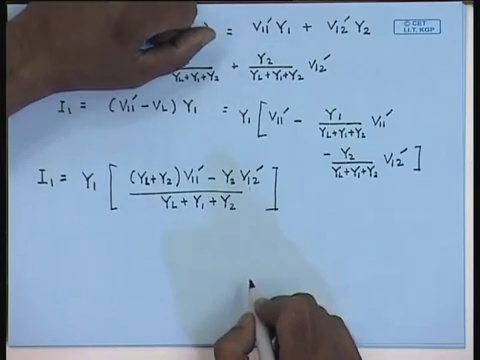 = V11′ Y1 + V12′ Y2
© CET
I.I.T. KGP
/ YL+Y1+Y2 + Y2 / YL+Y1+Y2 V12′
I1 = (V11′ − VL) Y1 = Y1 [ V11′ − Y1 / YL+Y1+Y2 V11′
− Y2 / YL+Y1+Y2 V12′ ]
I1 = Y1 [ (YL+Y2) V11′ − Y2 V12′ / YL + Y1 + Y2 ]